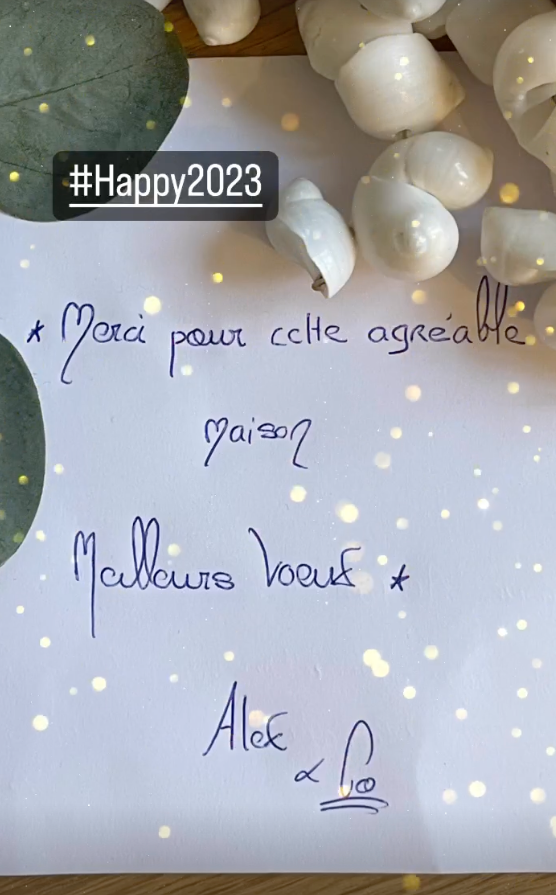 #Happy2023
* Merci pour cette agréable
maison
Meilleurs Voeux *
Alex
& Co